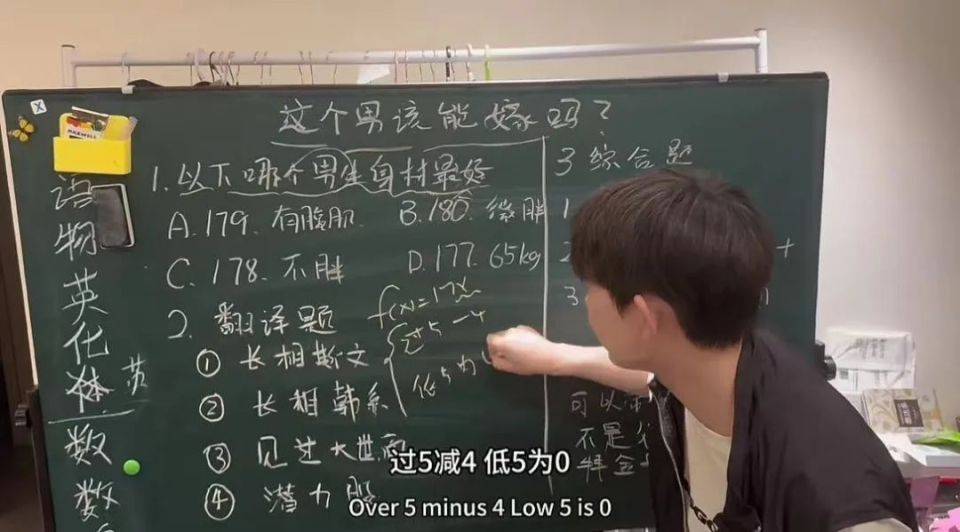 这个男孩能嫁吗？
1.以下哪个男生身材最好
A.179.有腹肌 B.180.微胖
C.178.不胖 D.177.65kg
2.翻译题
f(x)=17x
过5-4
低5为
① 长相斯文
② 长相韩系
③ 见过大世面
④ 潜力股
3综合题
1
2
3
可以
不是
语
物
英
化
体 英
数
数
MAXWELL
过5减4 低5为0
Over 5 minus 4 Low 5 is 0